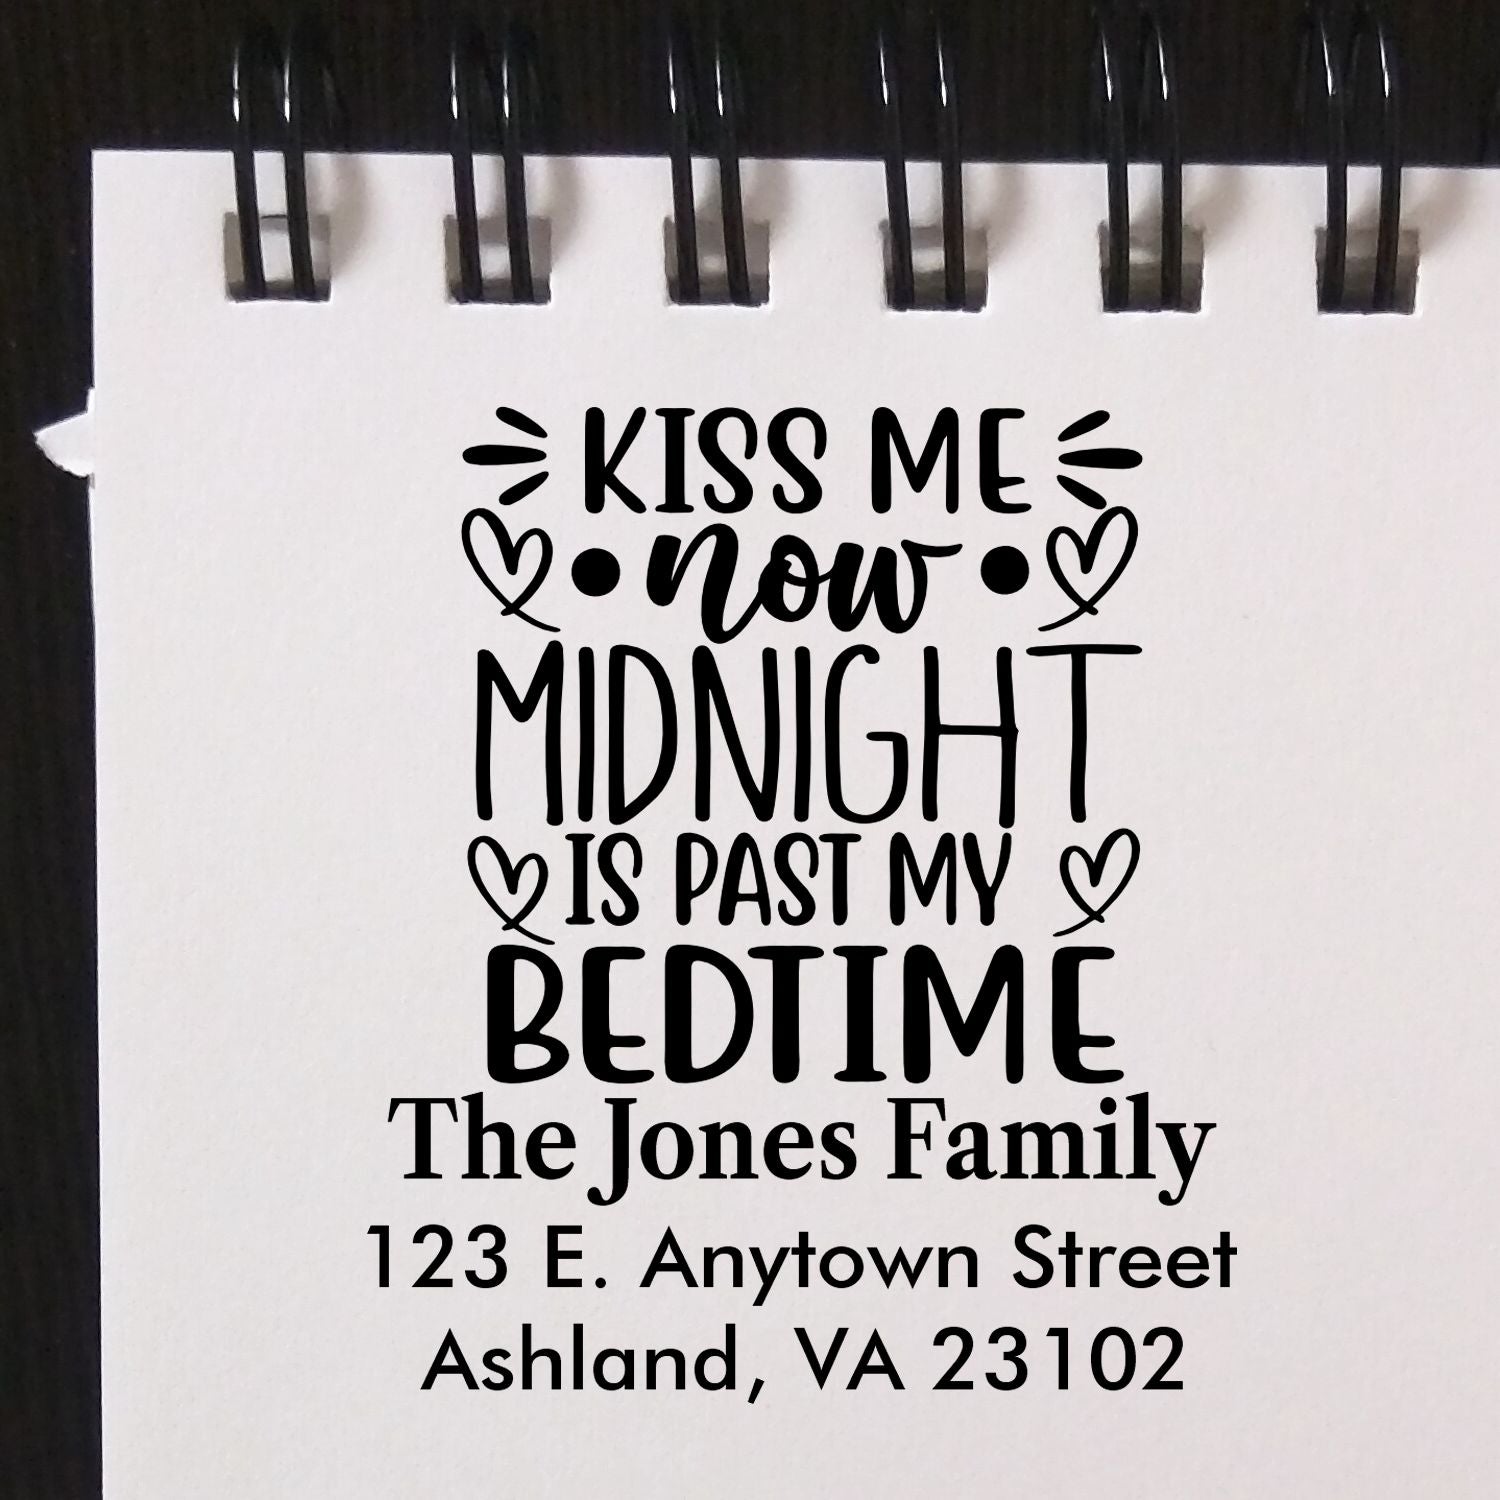 KISS ME
now
MIDNIGHT
IS PAST MY
BEDTIME
The Jones Family
123 E. Anytown Street
Ashland, VA 23102